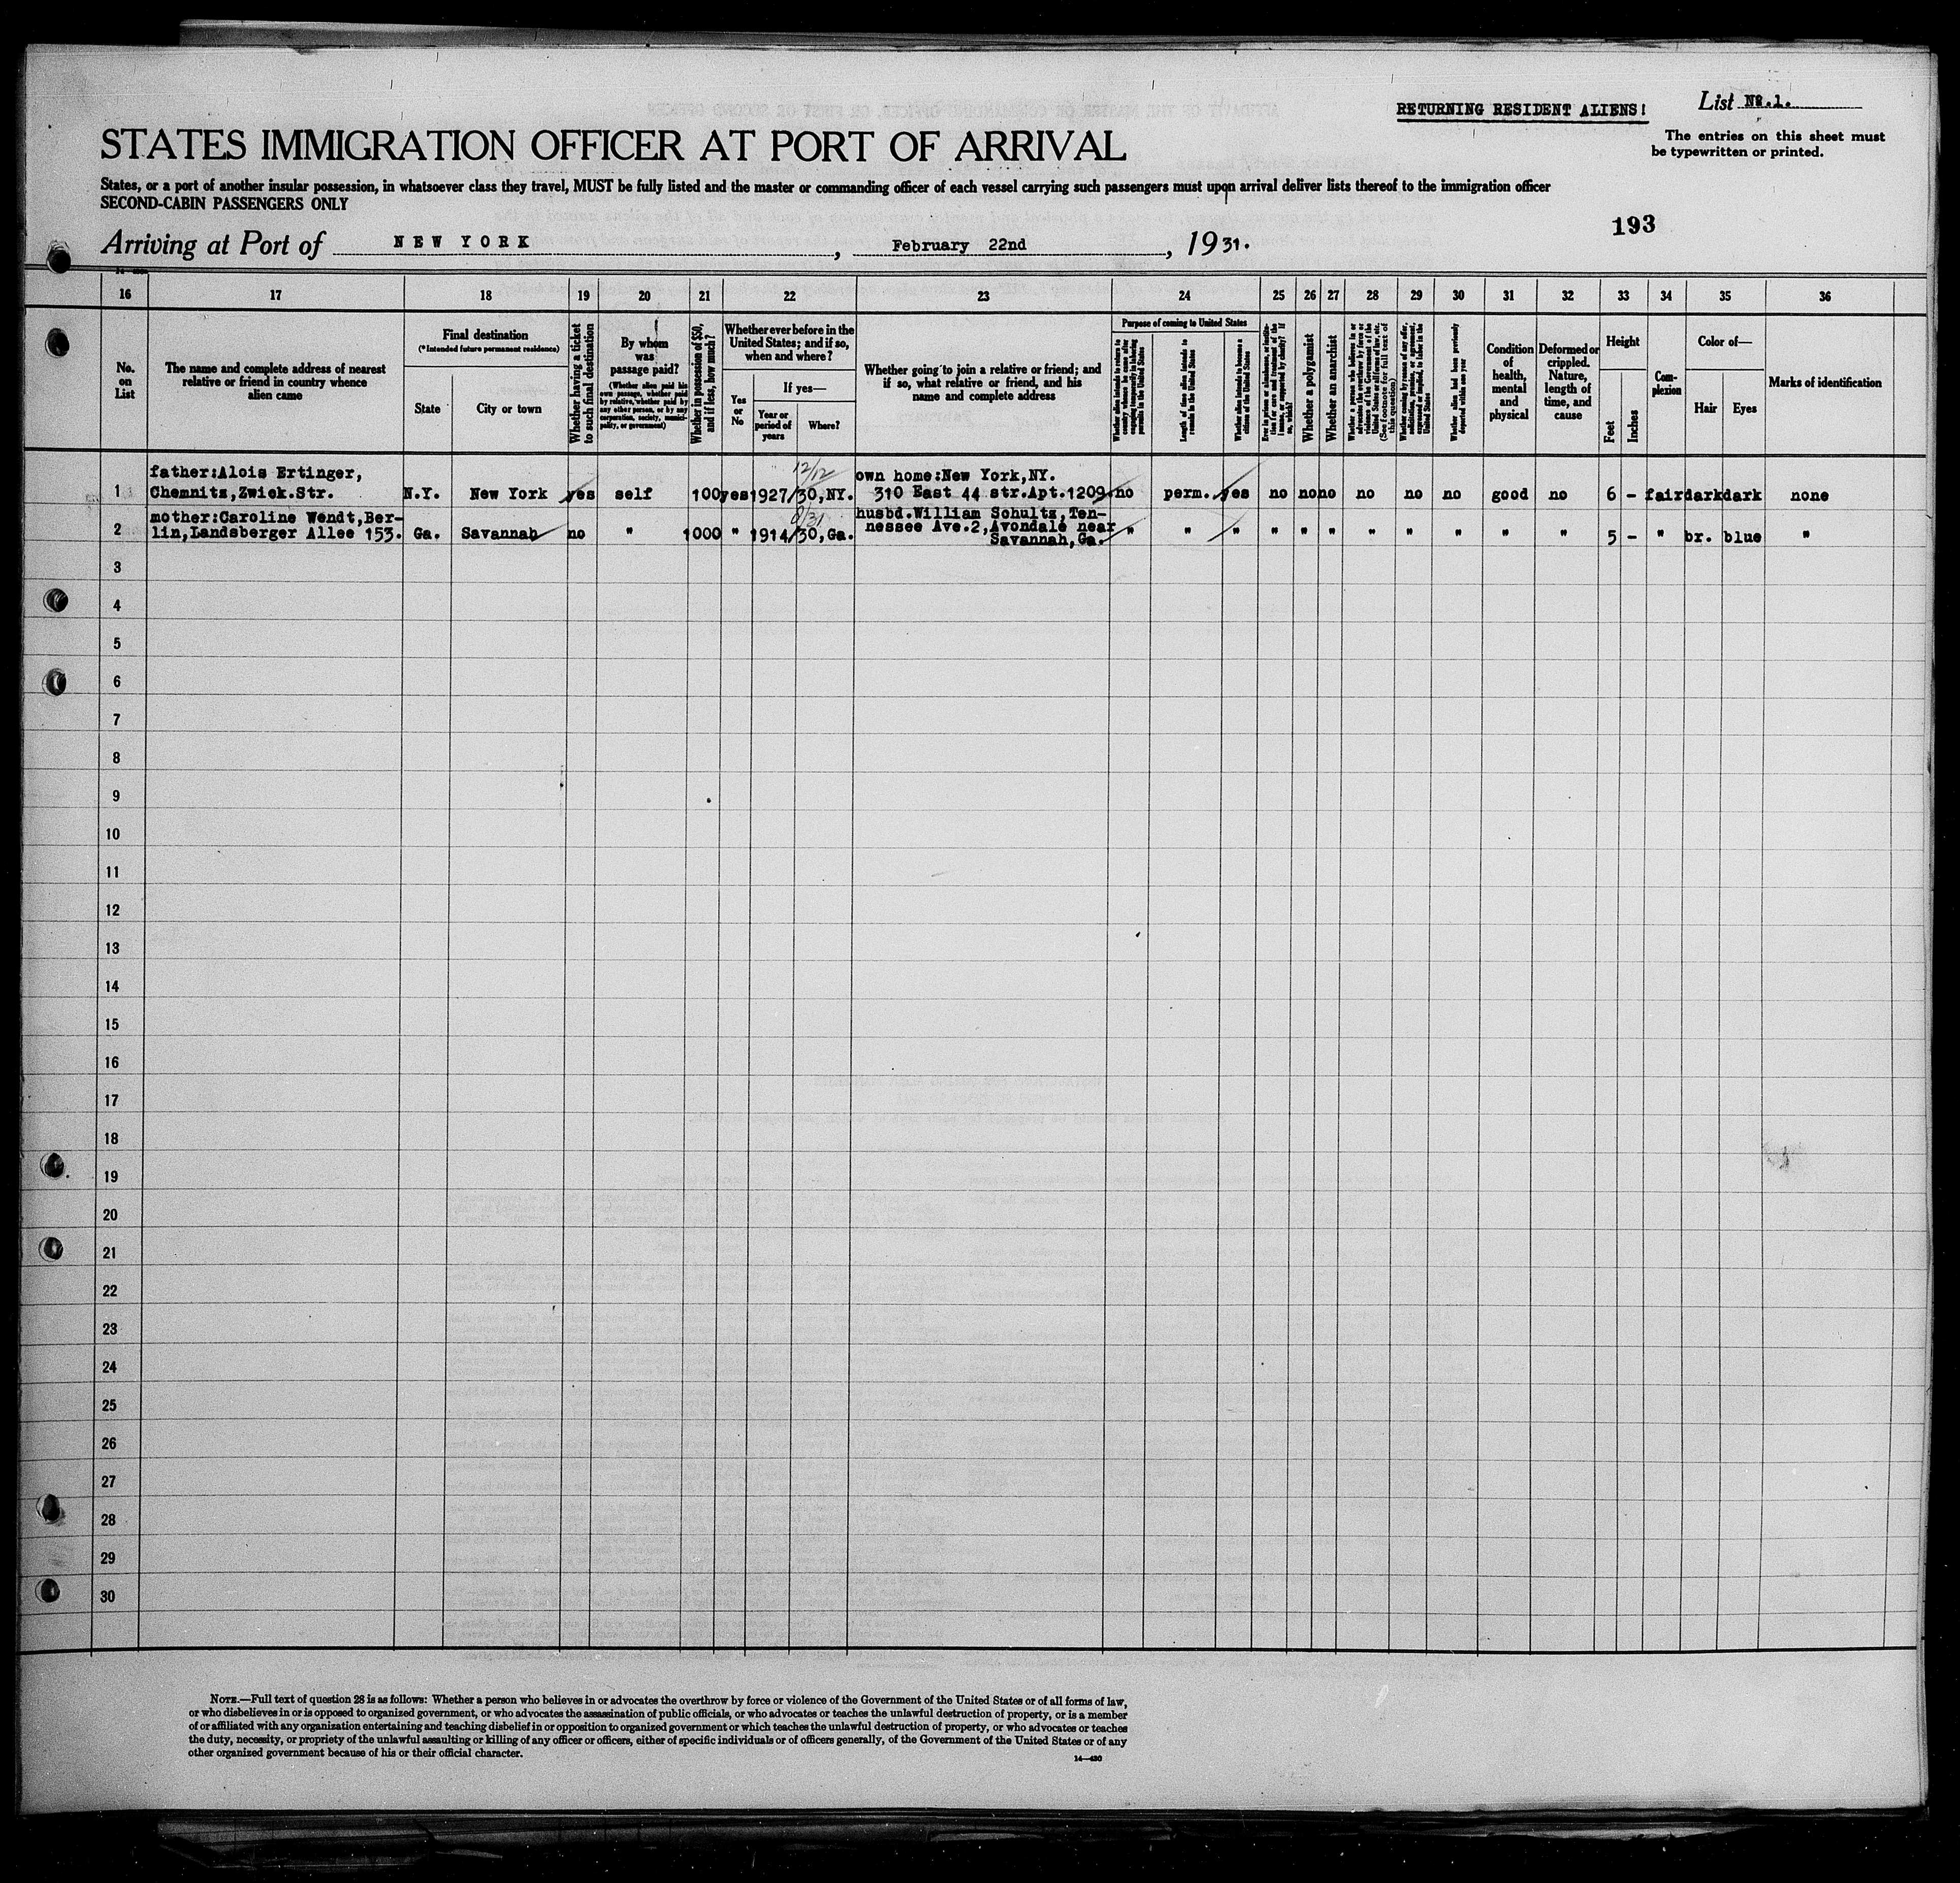 RETURNING RESIDENT ALIENS!
List No.1.
The entries on this sheet must
be typewritten or printed.
STATES IMMIGRATION OFFICER AT PORT OF ARRIVAL
States, or a port of another insular possession, in whatsoever class they travel, MUST be fully listed and the master or commanding officer of each vessel carrying such passengers must upon arrival deliver lists thereof to the immigration officer
SECOND-CABIN PASSENGERS ONLY
193
Arriving at Port of NEW YORK, February 22nd, 1931.
16 17 18 19 20 21 22 23 24 25 26 27 28 29 30 31 32 33 34 35 36
No.
on
List
The name and complete address of nearest
relative or friend in country whence
alien came
Final destination
(*Intended future permanent residence)
State
City or town
Whether having a ticket
to such final destination
By whom
was
passage paid?
(Whether alien paid his
own passage, whether paid
by relative, whether paid by
any other person, or by any
corporation, society, munici-
pality, or government)
Whether in possession of $50,
and if less, how much?
Whether ever before in the
United States; and if so,
when and where?
Yes
or
No
If yes—
Year or
period of
years
Where?
Whether going to join a relative or friend; and
if so, what relative or friend, and his
name and complete address
Purpose of coming to United States
Whether alien intends to return to
country whence he came after
engaging temporarily in laboring
pursuits in the United States
Length of time alien intends to
remain in the United States
Whether alien intends to become a
citizen of the United States
Ever in prison or almshouse, or institu-
tion for care and treatment of the
insane, or supported by charity? If
so, which?
Whether a polygamist
Whether an anarchist
Whether a person who believes in or
advocates the overthrow by force or
violence of the Government of the
United States or all forms of law, etc.
(See footnote for full text of
this question)
Whether coming by reason of any offer,
solicitation, promise, or agreement,
expressed or implied, to labor in the
United States
Whether alien had been previously
deported within one year
Condition
of
health,
mental
and
physical
Deformed or
crippled.
Nature,
length of
time, and
cause
Height
Feet
Inches
Com-
plexion
Color of—
Hair
Eyes
Marks of identification
12/12
father:Alois Ertinger, own home:New York,NY.
1 Chemnitz,Zwick.Str. N.Y. New York yes self 100 yes 1927/30,NY. 310 East 44 str.Apt.1209. no perm. yes no no no no no no good no 6 - fair dark dark none
mother:Caroline Wendt,Ber- husbd.William Schultz,Ten-
2 lin,Landsberger Allee 153. Ga. Savannah no " 1000 " 1914/30,Ga. nessee Ave.2,Avondale near
Savannah,Ga. " " " " " " " " " " " 5 - " br. blue "
3
4
5
6
7
8
9
10
11
12
13
14
15
16
17
18
19
20
21
22
23
24
25
26
27
28
29
30
NOTE.—Full text of question 28 is as follows: Whether a person who believes in or advocates the overthrow by force or violence of the Government of the United States or of all forms of law,
or who disbelieves in or is opposed to organized government, or who advocates the assassination of public officials, or who advocates or teaches the unlawful destruction of property, or is a member
of or affiliated with any organization entertaining and teaching disbelief in or opposition to organized government or which teaches the unlawful destruction of property, or who advocates or teaches
the duty, necessity, or propriety of the unlawful assaulting or killing of any officer or officers, either of specific individuals or of officers generally, of the Government of the United States or of any
other organized government because of his or their official character.
14—430